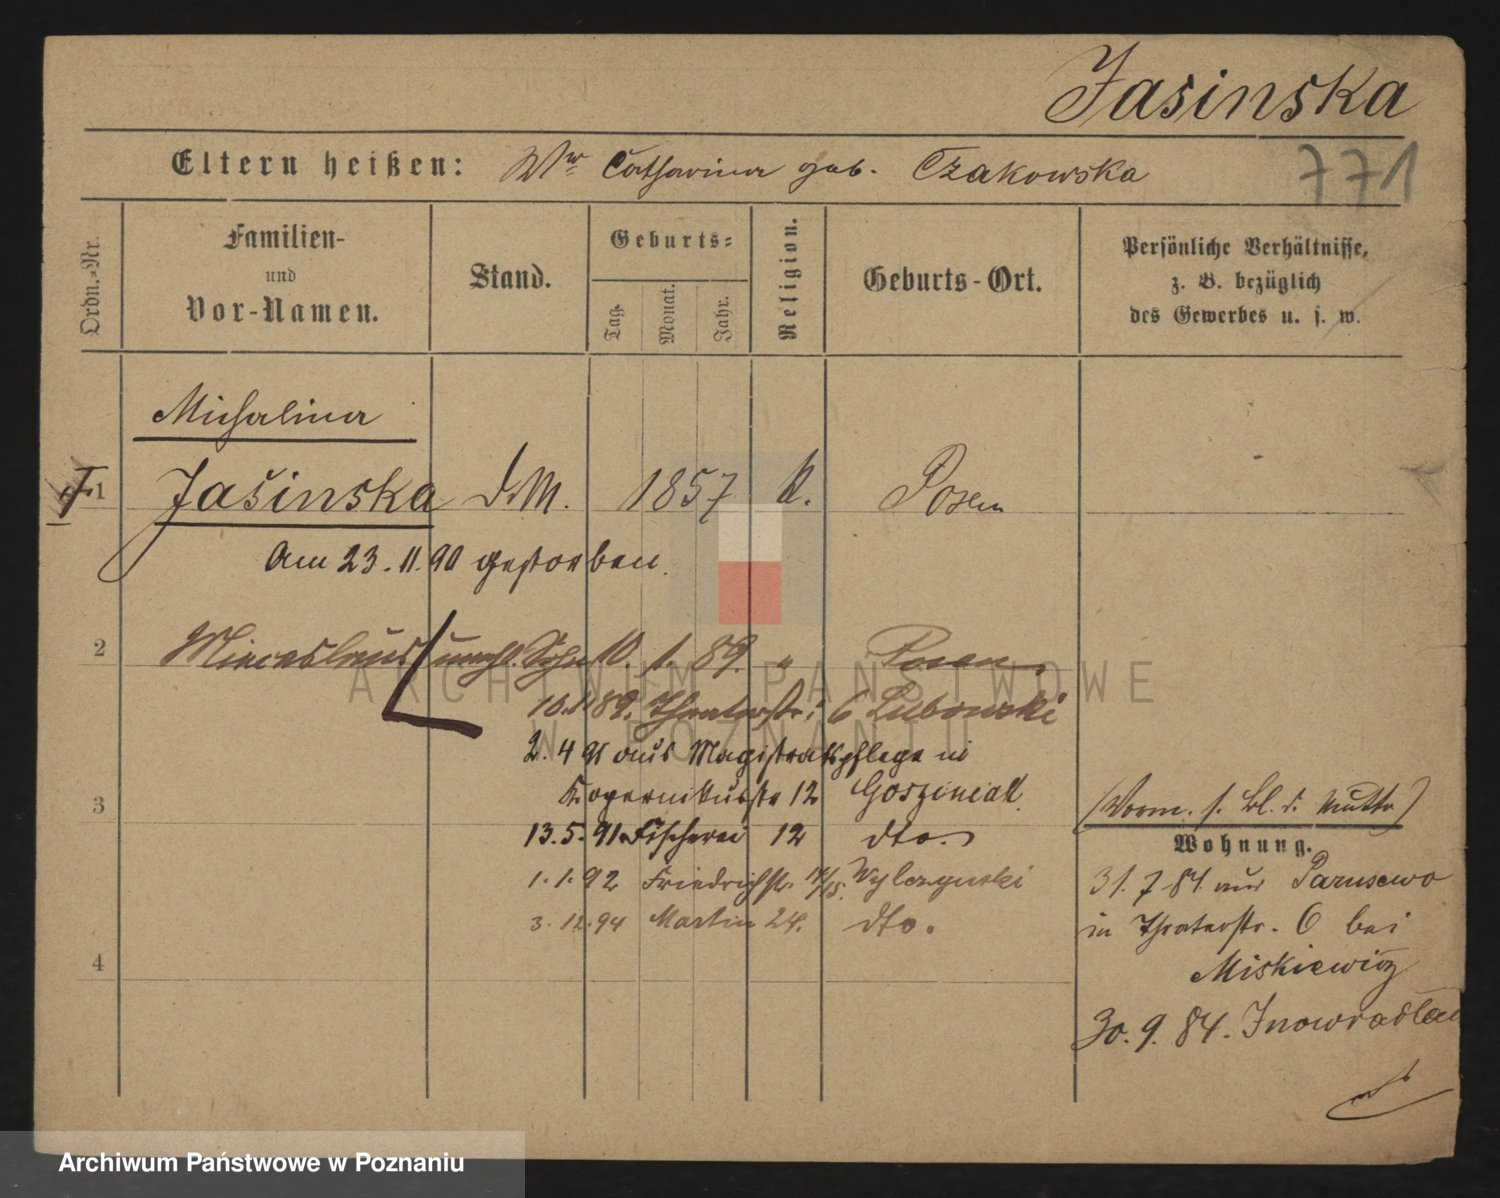 Jasinska
Eltern heißen: Ww Catharina geb. Czakowska
771
Ordn.-Nr.
Familien-
und
Vor-Namen.
Stand.
Geburts-
Tag.
Monat.
Jahr.
Religion.
Geburts-Ort.
Persönliche Verhältnisse,
z. B. bezüglich
des Gewerbes u. s. w.
Michalina
1 Jasinska d.M. 1857 k. Posen
Am 23.11.90 gestorben.
2 Mieceslaus unehl. Sohn 10. 1. 89. " Posen
10.1.89. Theaterstr. 6 Lubowski
2. 4 91 aus Magistratspflege in
3 Kopernikusstr 12 Gosziniak
13.5.91. Fischerei 12 dto.
1.1.92 Friedrichstr. 14/15. Wylczynski
3.12.94 Martin 24. dto.
4
(Vorm. s. Bl. d. Mutter)
Wohnung.
31.7 84. aus Parusewo
in Theaterstr. 6 bei
Miskiewicz
30.9.84. Inowradlaw
ARCHIWUM PAŃSTWOWE
W POZNANIU
Archiwum Państwowe w Poznaniu